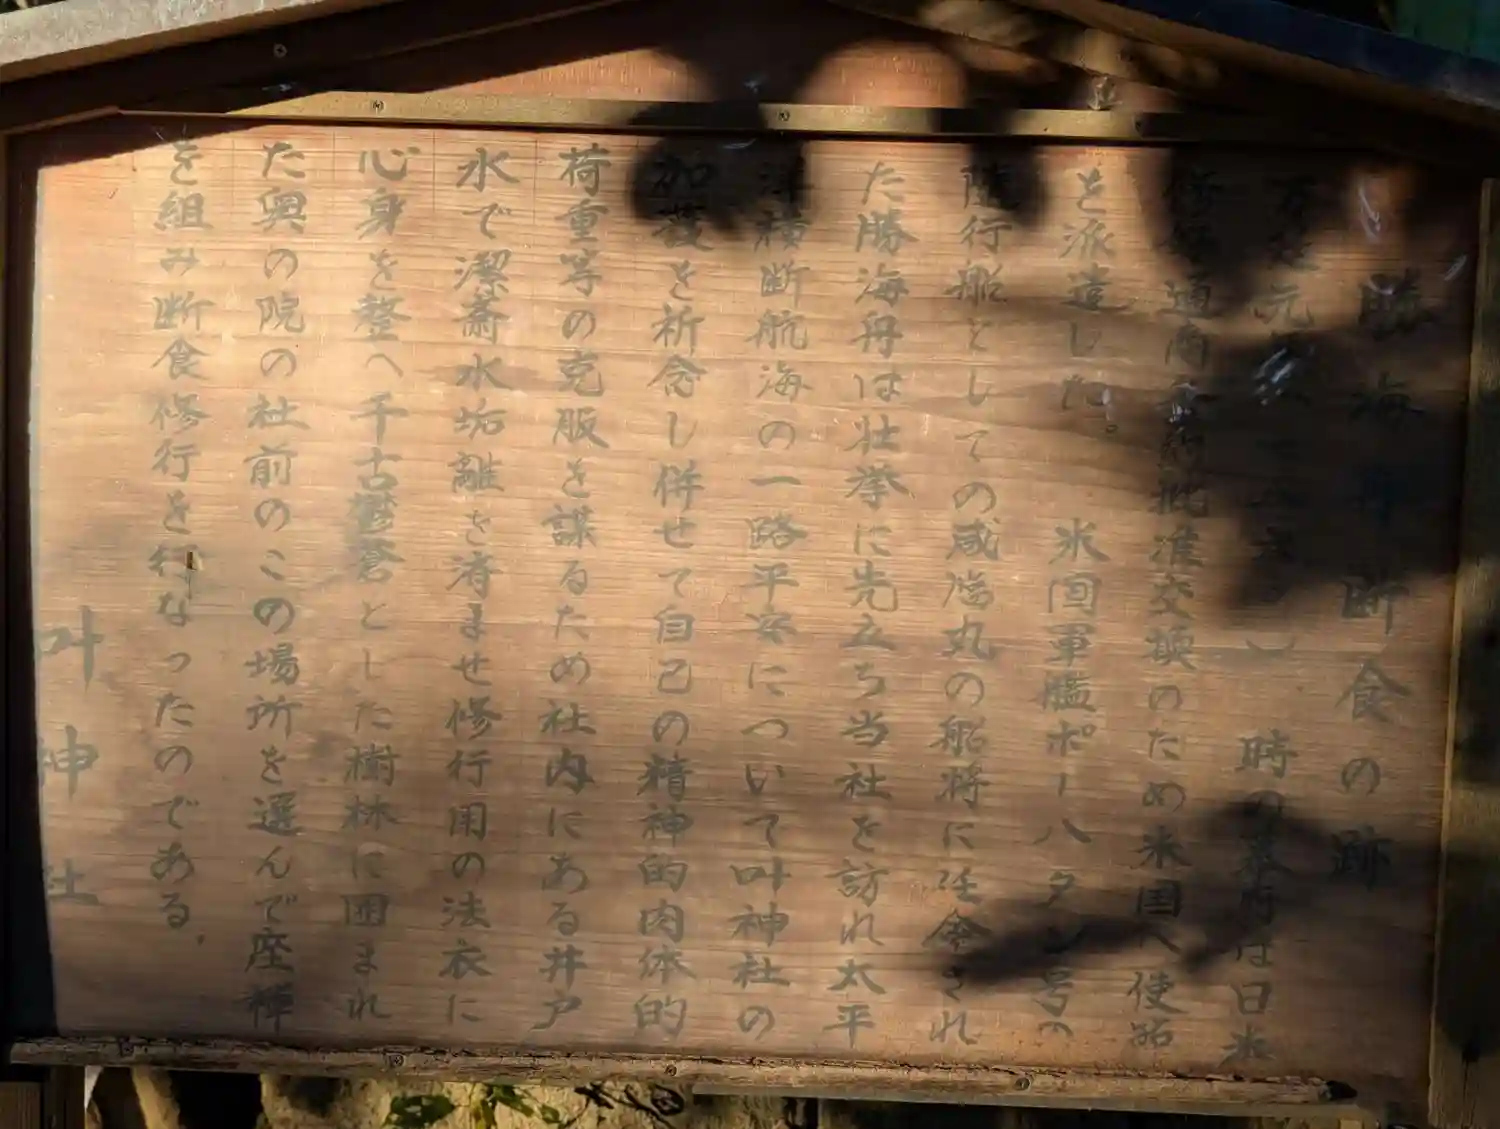 勝海舟断食の跡
万延元年 時の幕府は日米
修好通商条約批准交換のため米国へ使節
を派遣した。 米国軍艦ポーハタン号の
随行船としての咸臨丸の船将に任命され
た勝海舟は壮挙に先立ち当社を訪れ太平
洋横断航海の一路平安について叫神社の
加護を祈念し併せて自己の精神的肉体的
荷重等の克服を謀るため社内にある井戸
水で潔斎水垢離を済ませ修行用の法衣に
心身を整へ千古鬱蒼とした樹林に囲まれ
た奥の院の社前のこの場所を選んで座禅
を組み断食修行を行なったのである。
叶神社